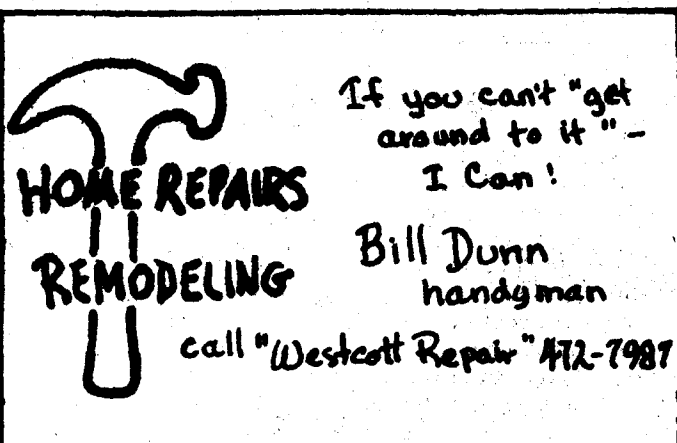 HOME REPAIRS
REMODELING
If you can't "get
around to it" -
I Can!
Bill Dunn
handyman
call "Westcott Repair" 472-7987